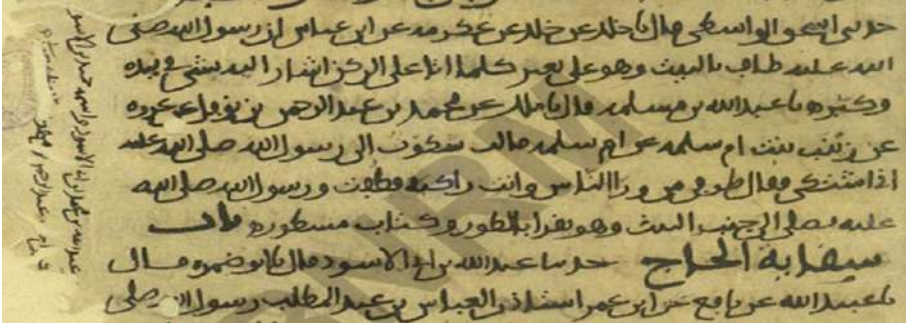 حدثني اسحق الواسطي قال نا خلد عن خلد عن عكرمه عن ابن عباس ان رسول الله صلى
الله عليه طاف بالبيت وهو على بعير كلما اتا على الركن اشار اليه بشي في يده
وكبر ه نا عبد الله بن مسلمه قال نا ملك عن محمد بن عبد الرحمن بن نوفل عن عروه
عن زينب بنت ام سلمه عن ام سلمه قالت شكوت الى رسول الله صلى الله عليه
اني اشتكي فقال طوفي من ورا الناس وانت راكبه فطفت ورسول الله صلى الله
عليه يصلي الى جنب البيت وهو يقرا بالطور وكتاب مسطور ه باب
سقاية الحاج حدثنا عبد الله بن ابي الاسود قال نا ابو ضمره قال
نا عبيد الله عن نافع عن ابن عمر استاذن العباس بن عبد المطلب رسول الله صلى
عبد الله بن محمد بن ابي الاسود واسمه حميد بن الاسود